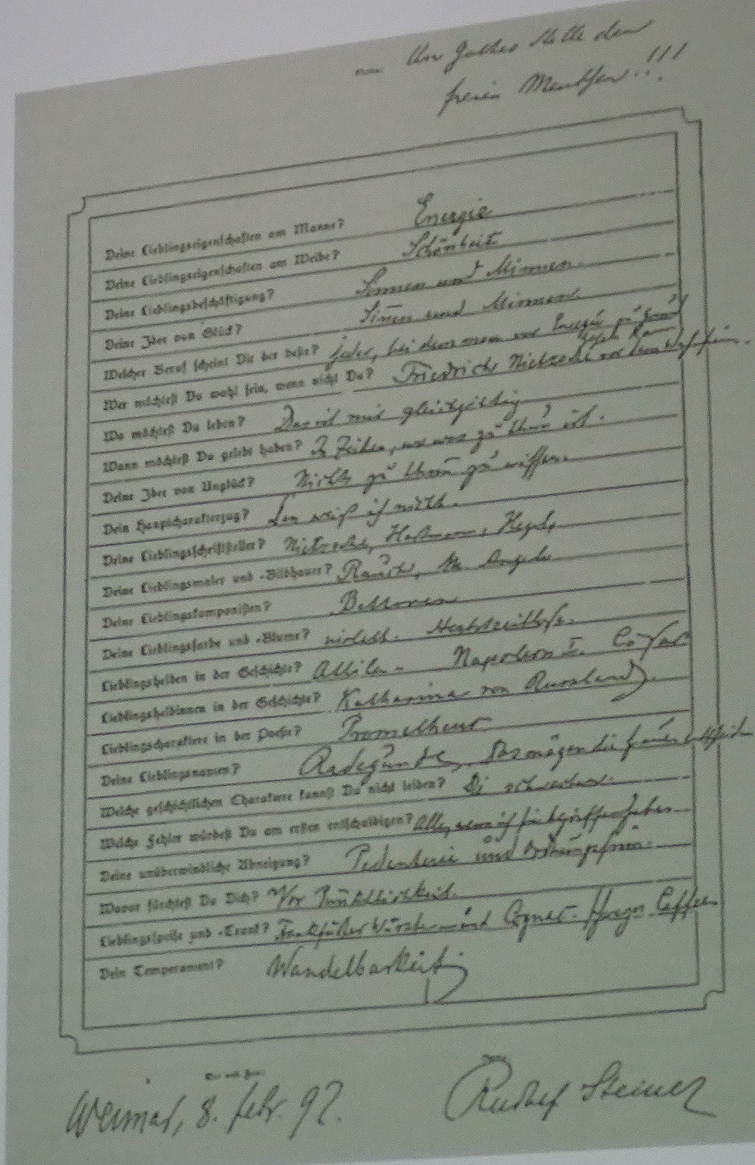 An Gottes Stelle den
freien Menschen!!!
Deine Lieblingseigenschaften am Manne? Energie
Deine Lieblingseigenschaften am Weibe? Schönheit
Deine Lieblingsbeschäftigung? Sinnen und Minnen.
Deine Idee von Glück? Sinnen und Minnen.
Welcher Beruf scheint Dir der beste? Jeder, bei dem man vor Energie zu Grunde gehen kann
Wer möchtest Du wohl sein, wenn nicht Du? Friedrich Nietzsche vor dem Wahnsinn.
Wo möchtest Du leben? Das ist mir gleichgiltig
Wann möchtest Du gelebt haben? In Zeiten, wo was zu thun ist.
Deine Idee von Unglück? Nichts zu thun zu wissen.
Dein Hauptcharakterzug? Den weiß ich nicht.
Deine Lieblingsschriftsteller? Nietzsche, Hartmann, Hegel,
Deine Lieblingsmaler und -Bildhauer? Rauch, M. Angelo
Deine Lieblingskomponisten? Beethoven
Deine Lieblingsfarbe und -Blume? violett. Herbstzeitlose.
Lieblingshelden in der Geschichte? Attila. Napoleon I. Cäsar
Lieblingsheldinnen in der Geschichte? Katharina von Russland.
Lieblingscharaktere in der Poesie? Prometheus
Deine Lieblingsnamen? Radegunde, Das mögen die Frauen entscheiden
Welche geschichtlichen Charaktere kannst Du nicht leiden? Die schwachen.
Welche Fehler würdest Du am ersten entschuldigen? Alle, wenn ich sie begriffen habe.
Deine unüberwindliche Abneigung? Pedanterie und Ordnungssinn.
Wovor fürchtest Du Dich? Vor Pünktlichkeit.
Lieblingsspeise und -Trank? Frankfurter Würste und Cognac. Schwarzer Caffee
Dein Temperament? Wandelbarkeit
Weimar, 8. Febr. 92. Rudolf Steiner